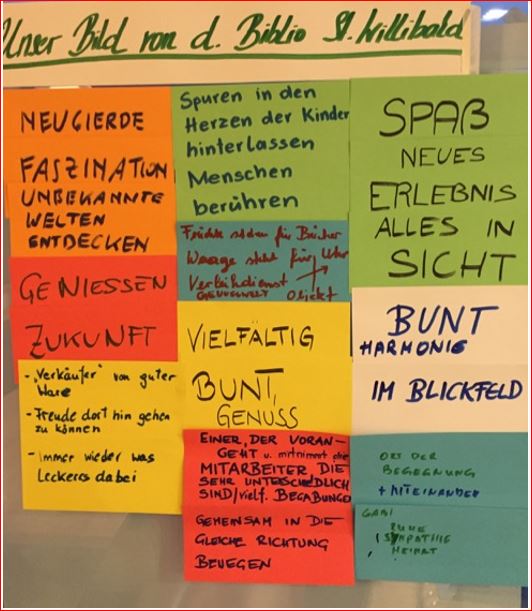 Unser Bild von d. Biblio St. Willibald
NEUGIERDE
FASZINATION
UNBEKANNTE
WELTEN
ENTDECKEN
GENIESSEN
ZUKUNFT
- "Verkäufer" von guter
Ware
- Freude dort hin gehen
zu können
- Immer wieder was
Leckeres dabei
Spuren in den
Herzen der Kinder
hinterlassen
Menschen
berühren
Früchte stehen für Bücher
Waage steht für Uhr
Verleihdienst
Objekt
VIELFÄLTIG
BUNT,
GENUSS
EINER, DER VORAN-
GEHT u. mitnimmt die
MITARBEITER, DIE
SEHR UNTERSCHIEDLICH
SIND/vielf. BEGABUNGEN
GEMEINSAM IN DIE
GLEICHE RICHTUNG
BEWEGEN
SPAß
NEUES
ERLEBNIS
ALLES IN
SICHT
BUNT
HARMONIE
IM BLICKFELD
ORT DER
BEGEGNUNG
+ MITEINANDER
GABI
RUHE
SYMPATHIE
HEIMAT